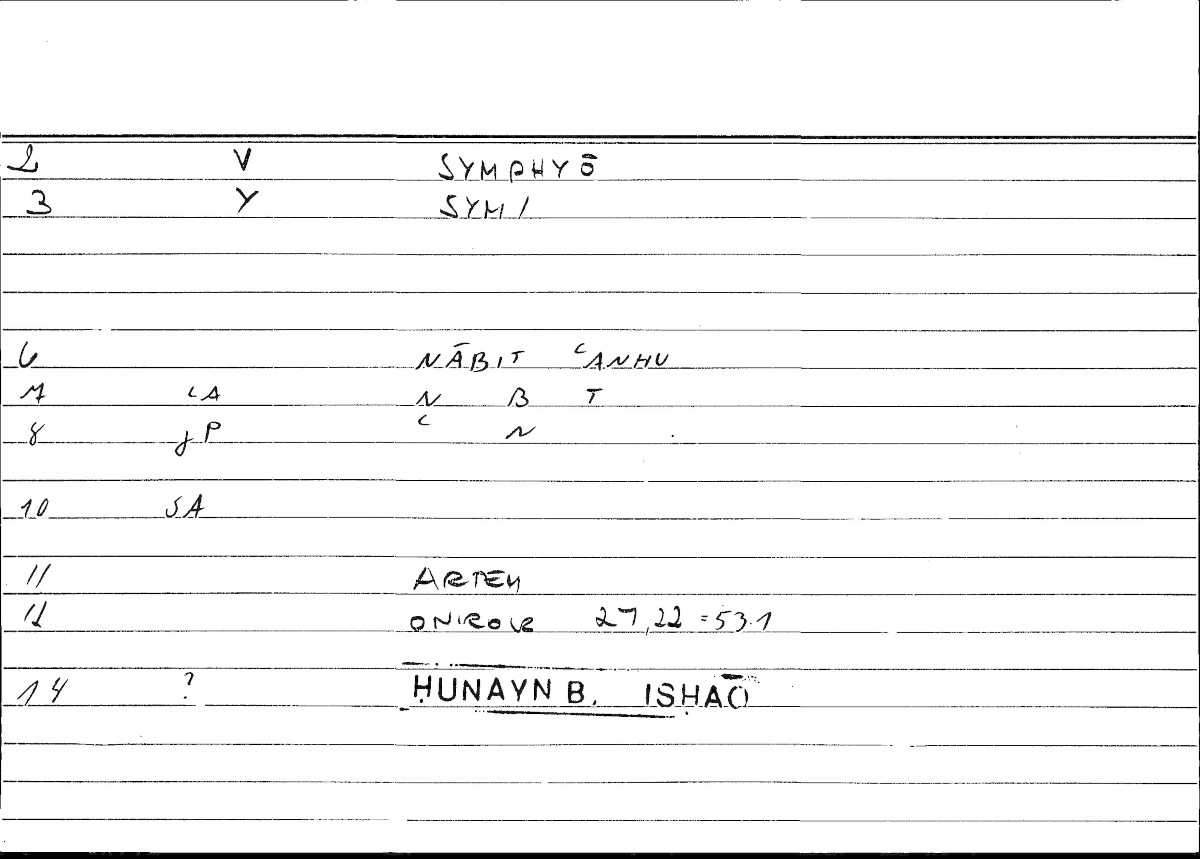 2 V SYMPHYŌ
3 Y SYM/
6 NĀBIT ʿANHU
7 LA N B T
8 gP ʿ N
10 SA
11 ARTEM
12 ONIROKR 27,22 = 53.1
14 ? ḤUNAYN B. ISḤĀQ